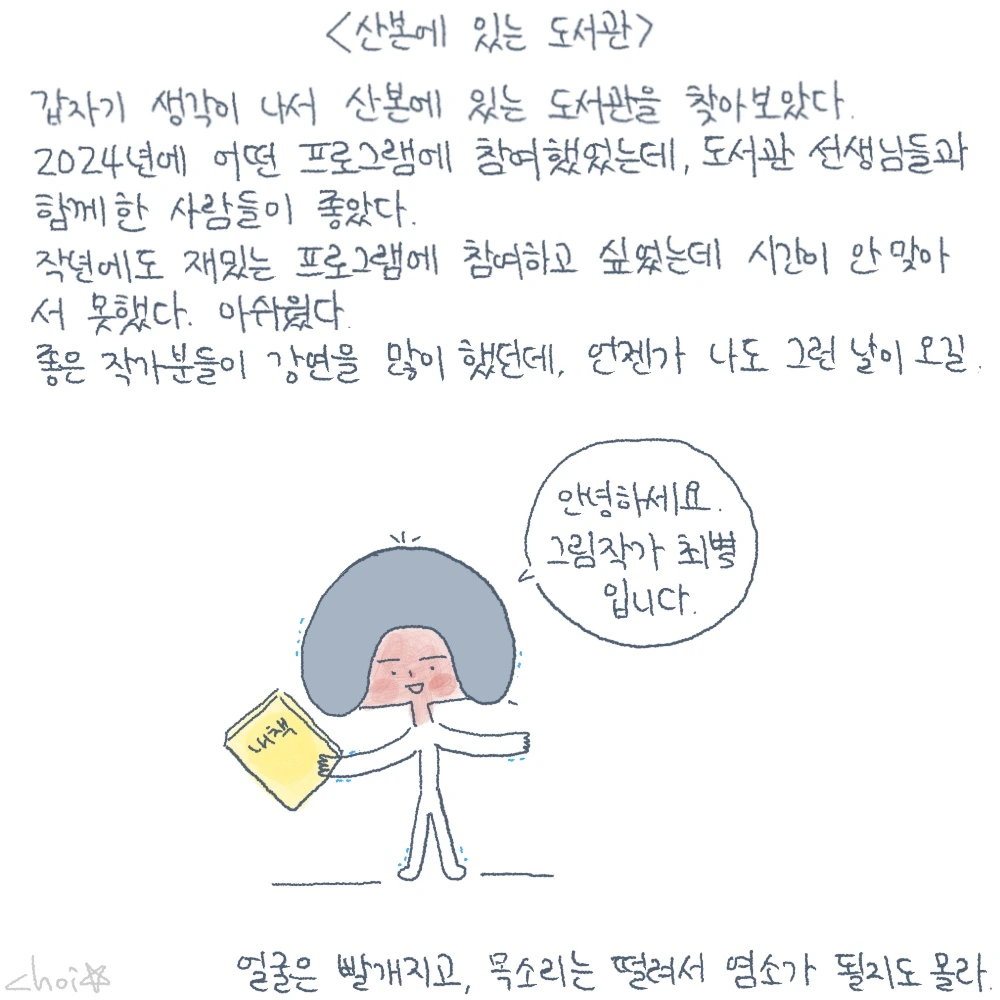 <산본에 있는 도서관>
갑자기 생각이 나서 산본에 있는 도서관을 찾아보았다.
2024년에 어떤 프로그램에 참여했었는데, 도서관 선생님들과
함께한 사람들이 좋았다.
작년에도 재밌는 프로그램에 참여하고 싶었는데 시간이 안 맞아
서 못했다. 아쉬웠다.
좋은 작가분들이 강연을 많이 했던데, 언젠가 나도 그런 날이 오길.
안녕하세요.
그림작가 최병
입니다.
내 책
얼굴은 빨개지고, 목소리는 떨려서 염소가 될지도 몰라.
choi